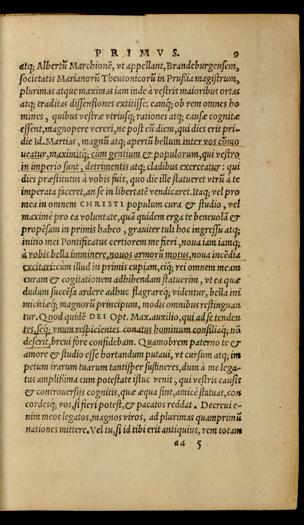 PRIMVS. 9
atq; Albertū Marchionē, vt appellant, Brandeburgensem,
societatis Marianorū Theutonicorū in Prußia magistrum,
plurimas atque maximas iam inde à vestris maioribus ortas
atq; traditas dissensiones extitisse: eamq; ob rem omnes ho
mines, quibus vestræ vtriusq; rationes atq; causæ cognitæ
essent, magnopere vereri, ne post eū diem, qui dies erit pri-
die Id. Martias, magnū atq; apertū bellum inter vos conci
ueatur, maximisq; cùm gentium & populorum, qui vestro
in imperio sunt, detrimentis atq; cladibus exerceatur: qui
dies præstitutus à vobis fuit, quo die ille statueret vtrū ä te
imperata faceret, an se in libertatē vendicaret. Itaq; vel pro
mea in omnem CHRISTI populum cura & studio, vel
maximè pro ea voluntate, quā quidem erga te beneuolā &
propēsam in primis habeo, grauiter tuli hoc ingressu atq;
initio mei Pontificatus certiorem me fieri, noua iam iamq;
à vobis bella imminere, nouos armorū motus, noua incēdia
excitari: cùm illud in primis cupiam, eiq; rei omnem meam
curam & cogitationem adhibendam statuerim, vt ea quæ
dudum succēsa ardere adhuc flagrareq; videntur, bella ini
micitiæq; magnorū principum, modis omnibus restinguan
tur. Quod quidē DEI Opt. Max. auxilio, qui ad se tenden
tes, seq; vnum respicientes conatus hominum consiliaq; nō
deserit, breui fore confidebam. Quamobrem paterno te &
amore & studio esse hortandum putaui, vt cursum atq; im
petum irarum tuarum tantisper sustineres, dum à me lega-
tus amplißima cum potestate istuc venit, qui vestris causis
& controuersijs cognitis, quæ æqua sint, amicè statuat, con
cordesq; vos, si fieri potest, & pacatos reddat. Decreui e-
nim meos legatos, magnos viros, ad plurimas quamprimū
nationes mittere. Vel tu, si id tibi erit antiquius, rem totam
aa 5